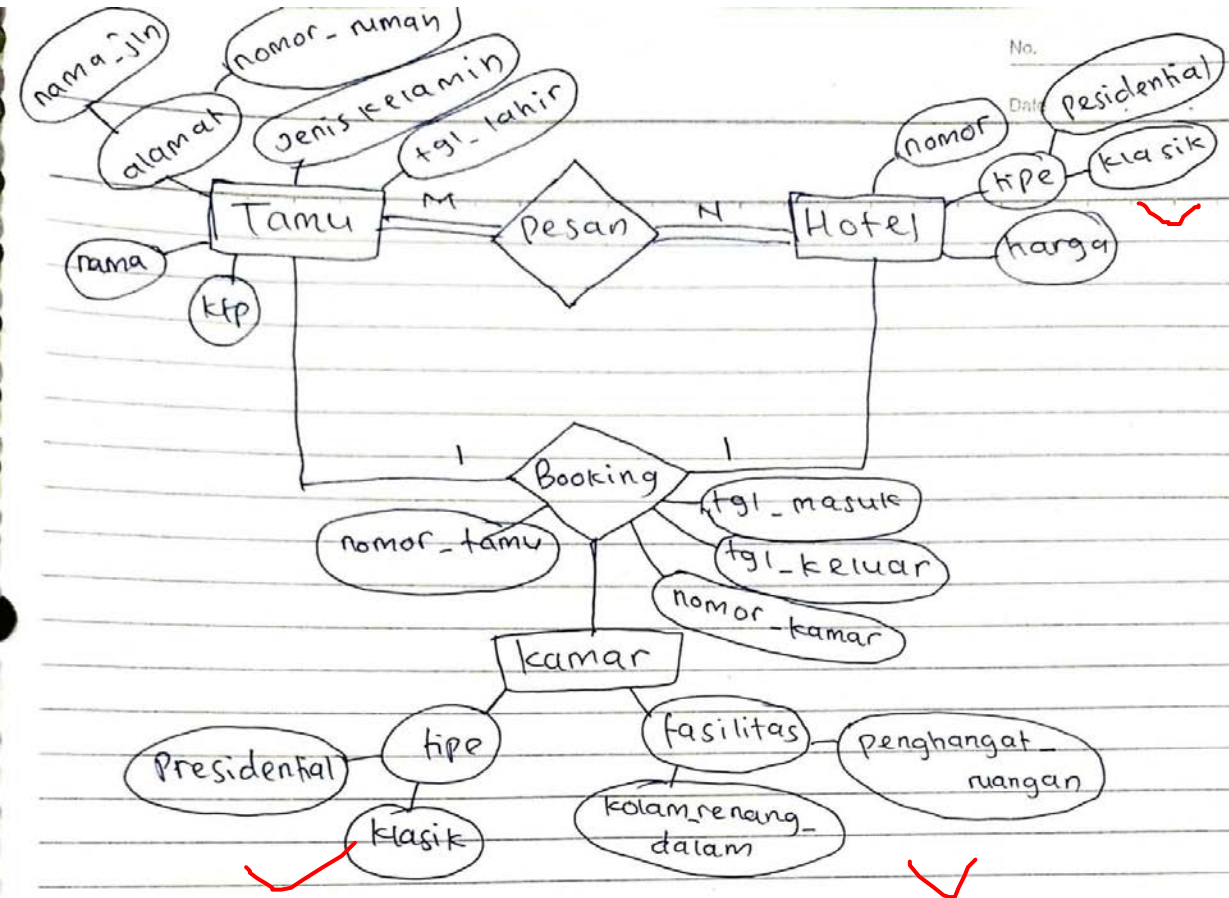 No.
Date
nama_jln
nomor_rumah
alamat
Jenis kelamin
tgl_lahir
Tamu
nama
ktp
M
Pesan
N
Hotel
nomor
tipe
pesidential
klasik
harga
1
Booking
1
nomor_tamu
tgl_masuk
tgl_keluar
nomor_kamar
kamar
tipe
Presidential
klasik
fasilitas
penghangat_
ruangan
kolam_renang_
dalam